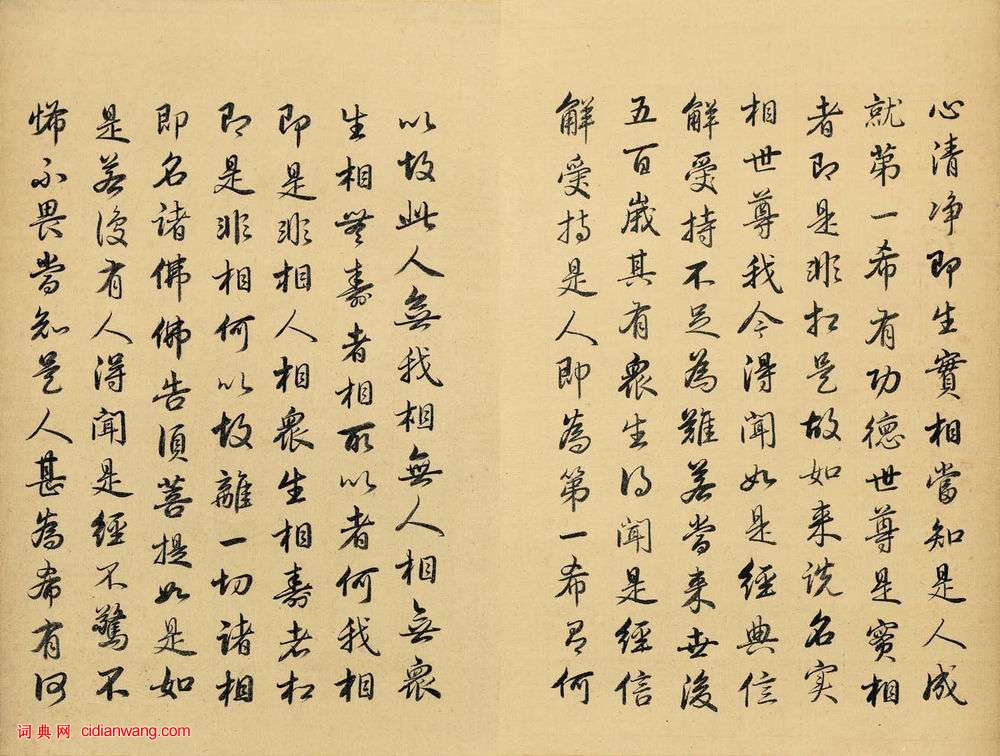 心清净即生實相當知是人成
就第一希有功德世尊是實相
者即是非相是故如来説名实
相世尊我今得聞如是經典信
解受持不足為難若當来世後
五百歳其有衆生得聞是經信
解受持是人即為第一希有何
以故此人無我相無人相無衆
生相無壽者相所以者何我相
即是非相人相衆生相壽者相
即是非相何以故離一切諸相
即名諸佛佛告須菩提如是如
是若復有人得聞是經不驚不
怖不畏當知是人甚為希有何
词典网 cidianwang.com